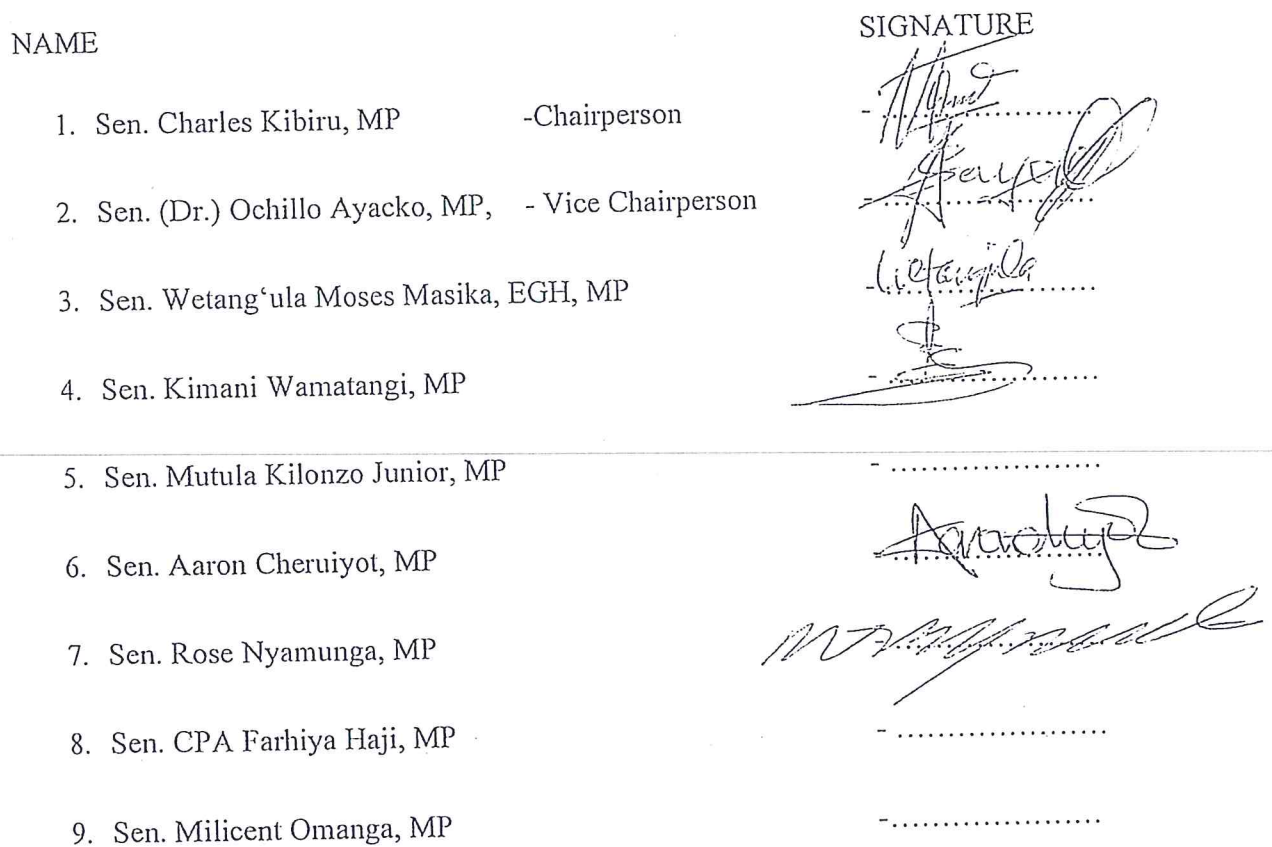 NAME SIGNATURE
1. Sen. Charles Kibiru, MP -Chairperson - ......................
2. Sen. (Dr.) Ochillo Ayacko, MP, - Vice Chairperson - ......................
3. Sen. Wetang‘ula Moses Masika, EGH, MP - Wetangula ......................
4. Sen. Kimani Wamatangi, MP - ......................
5. Sen. Mutula Kilonzo Junior, MP - ......................
6. Sen. Aaron Cheruiyot, MP - ......................
7. Sen. Rose Nyamunga, MP
8. Sen. CPA Farhiya Haji, MP - ......................
9. Sen. Milicent Omanga, MP -......................